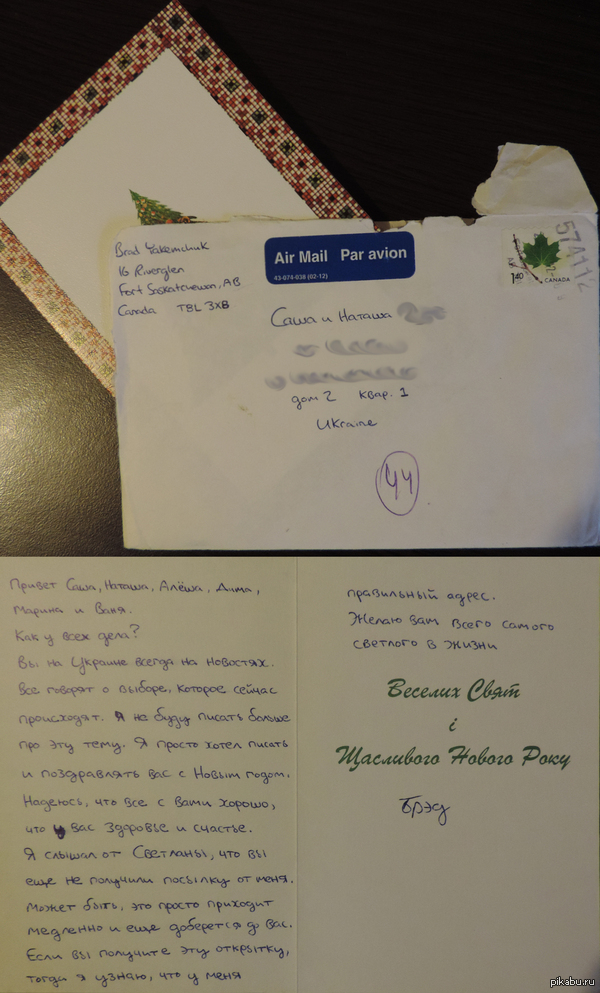 Brad Yakemchuk
16 Riverglen
Fort Saskatchewan, AB
Canada T8L 3X8
Air Mail Par avion
43-074-038 (02-12)
1.40
CANADA
Саша и Наташа
дом 2 квар. 1
Ukraine
44
Привет Саша, Наташа, Алёша, Дима,
Марина и Ваня.
Как у всех дела?
Вы на Украине всегда на новостях.
Все говорят о выборе, которое сейчас
происходят. Я не буду писать больше
про эту тему. Я просто хотел писать
и поздравлять вас с Новым годом.
Надеюсь, что все с вами хорошо,
что у вас здоровье и счастье.
Я слышал от Светланы, что вы
еще не получили посылку от меня.
Может быть, это просто приходит
медленно и еще доберется до вас.
Если вы получите эту открытку,
тогда я узнаю, что у меня
правильный адрес.
Желаю вам всего самого
светлого в жизни
Веселих Свят
і
Щасливого Нового Року
Брэд
pikabu.ru